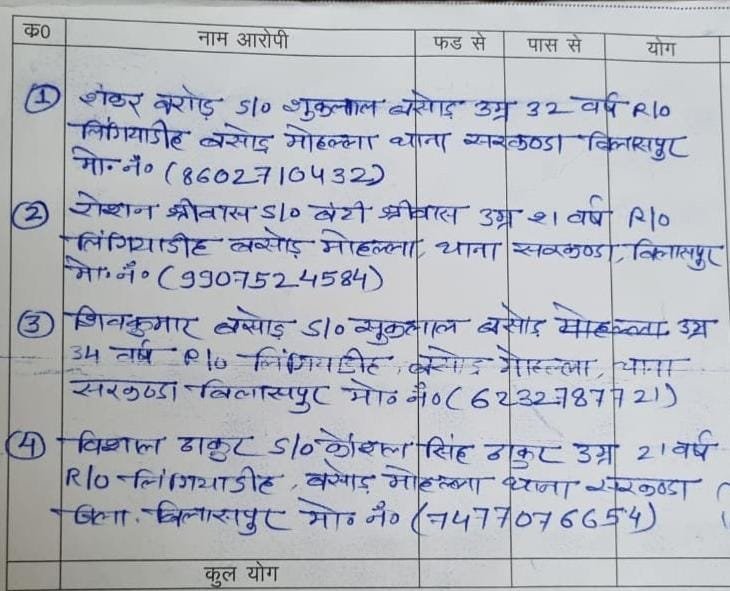 क0 नाम आरोपी फड से पास से योग
① शंकर बसोड़ S/o शुकलाल बसोड़ उम्र 32 वर्ष R/o
लिंगियाडीह बसोड़ मोहल्ला थाना सरकण्डा बिलासपुर
मो॰ नं॰ (8602710432)
② रोशन श्रीवास S/o बंटी श्रीवास उम्र 21 वर्ष R/o
लिंगियाडीह बसोड़ मोहल्ला, थाना सरकण्डा, बिलासपुर
मो॰ नं॰ (9907524584)
③ शिवकुमार बसोड़ S/o सुकलाल बसोड़ मोहल्ला उम्र
34 वर्ष R/o लिंगियाडीह, बसोड़ मोहल्ला, थाना
सरकण्डा बिलासपुर मो॰ नं॰ (6232787721)
④ विशाल ठाकुर S/o कौशल सिंह ठाकुर उम्र 21 वर्ष
R/o लिंगियाडीह, बसोड़ मोहल्ला थाना सरकण्डा
जिला. बिलासपुर मो॰ नं॰ (7477076654)
कुल योग